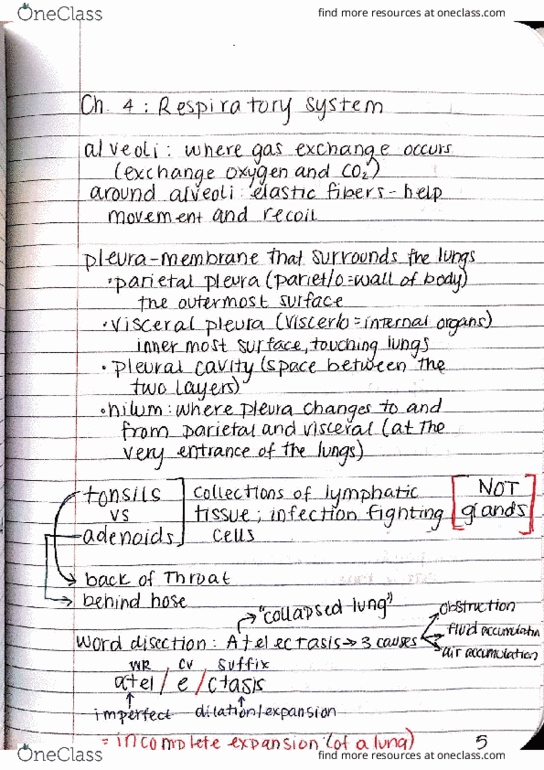 OneClass
find more resources at oneclass.com
Ch. 4: Respiratory system
alveoli: where gas exchange occurs
(exchange oxygen and CO₂)
around alveoli: elastic fibers - help
movement and recoil
pleura - membrane that surrounds the lungs
• parietal pleura (pariet/o = wall of body)
the outermost surface
• visceral pleura (viscer/o = internal organs)
inner most surface, touching lungs
• pleural cavity (space between the
two layers)
• hilum: where pleura changes to and
from parietal and visceral (at the
very entrance of the lungs)
tonsils
vs
adenoids
collections of lymphatic
tissue; infection fighting
cells
[NOT
glands]
back of Throat
behind nose
"collapsed lung"
word disection: Atelectasis → 3 causes
obstruction
fluid accumulatin
air accumulation
WR CV Suffix
atel / e / ctasis
imperfect dilation/expansion
= incomplete expansion (of a lung)
5
OneClass
find more resources at oneclass.com